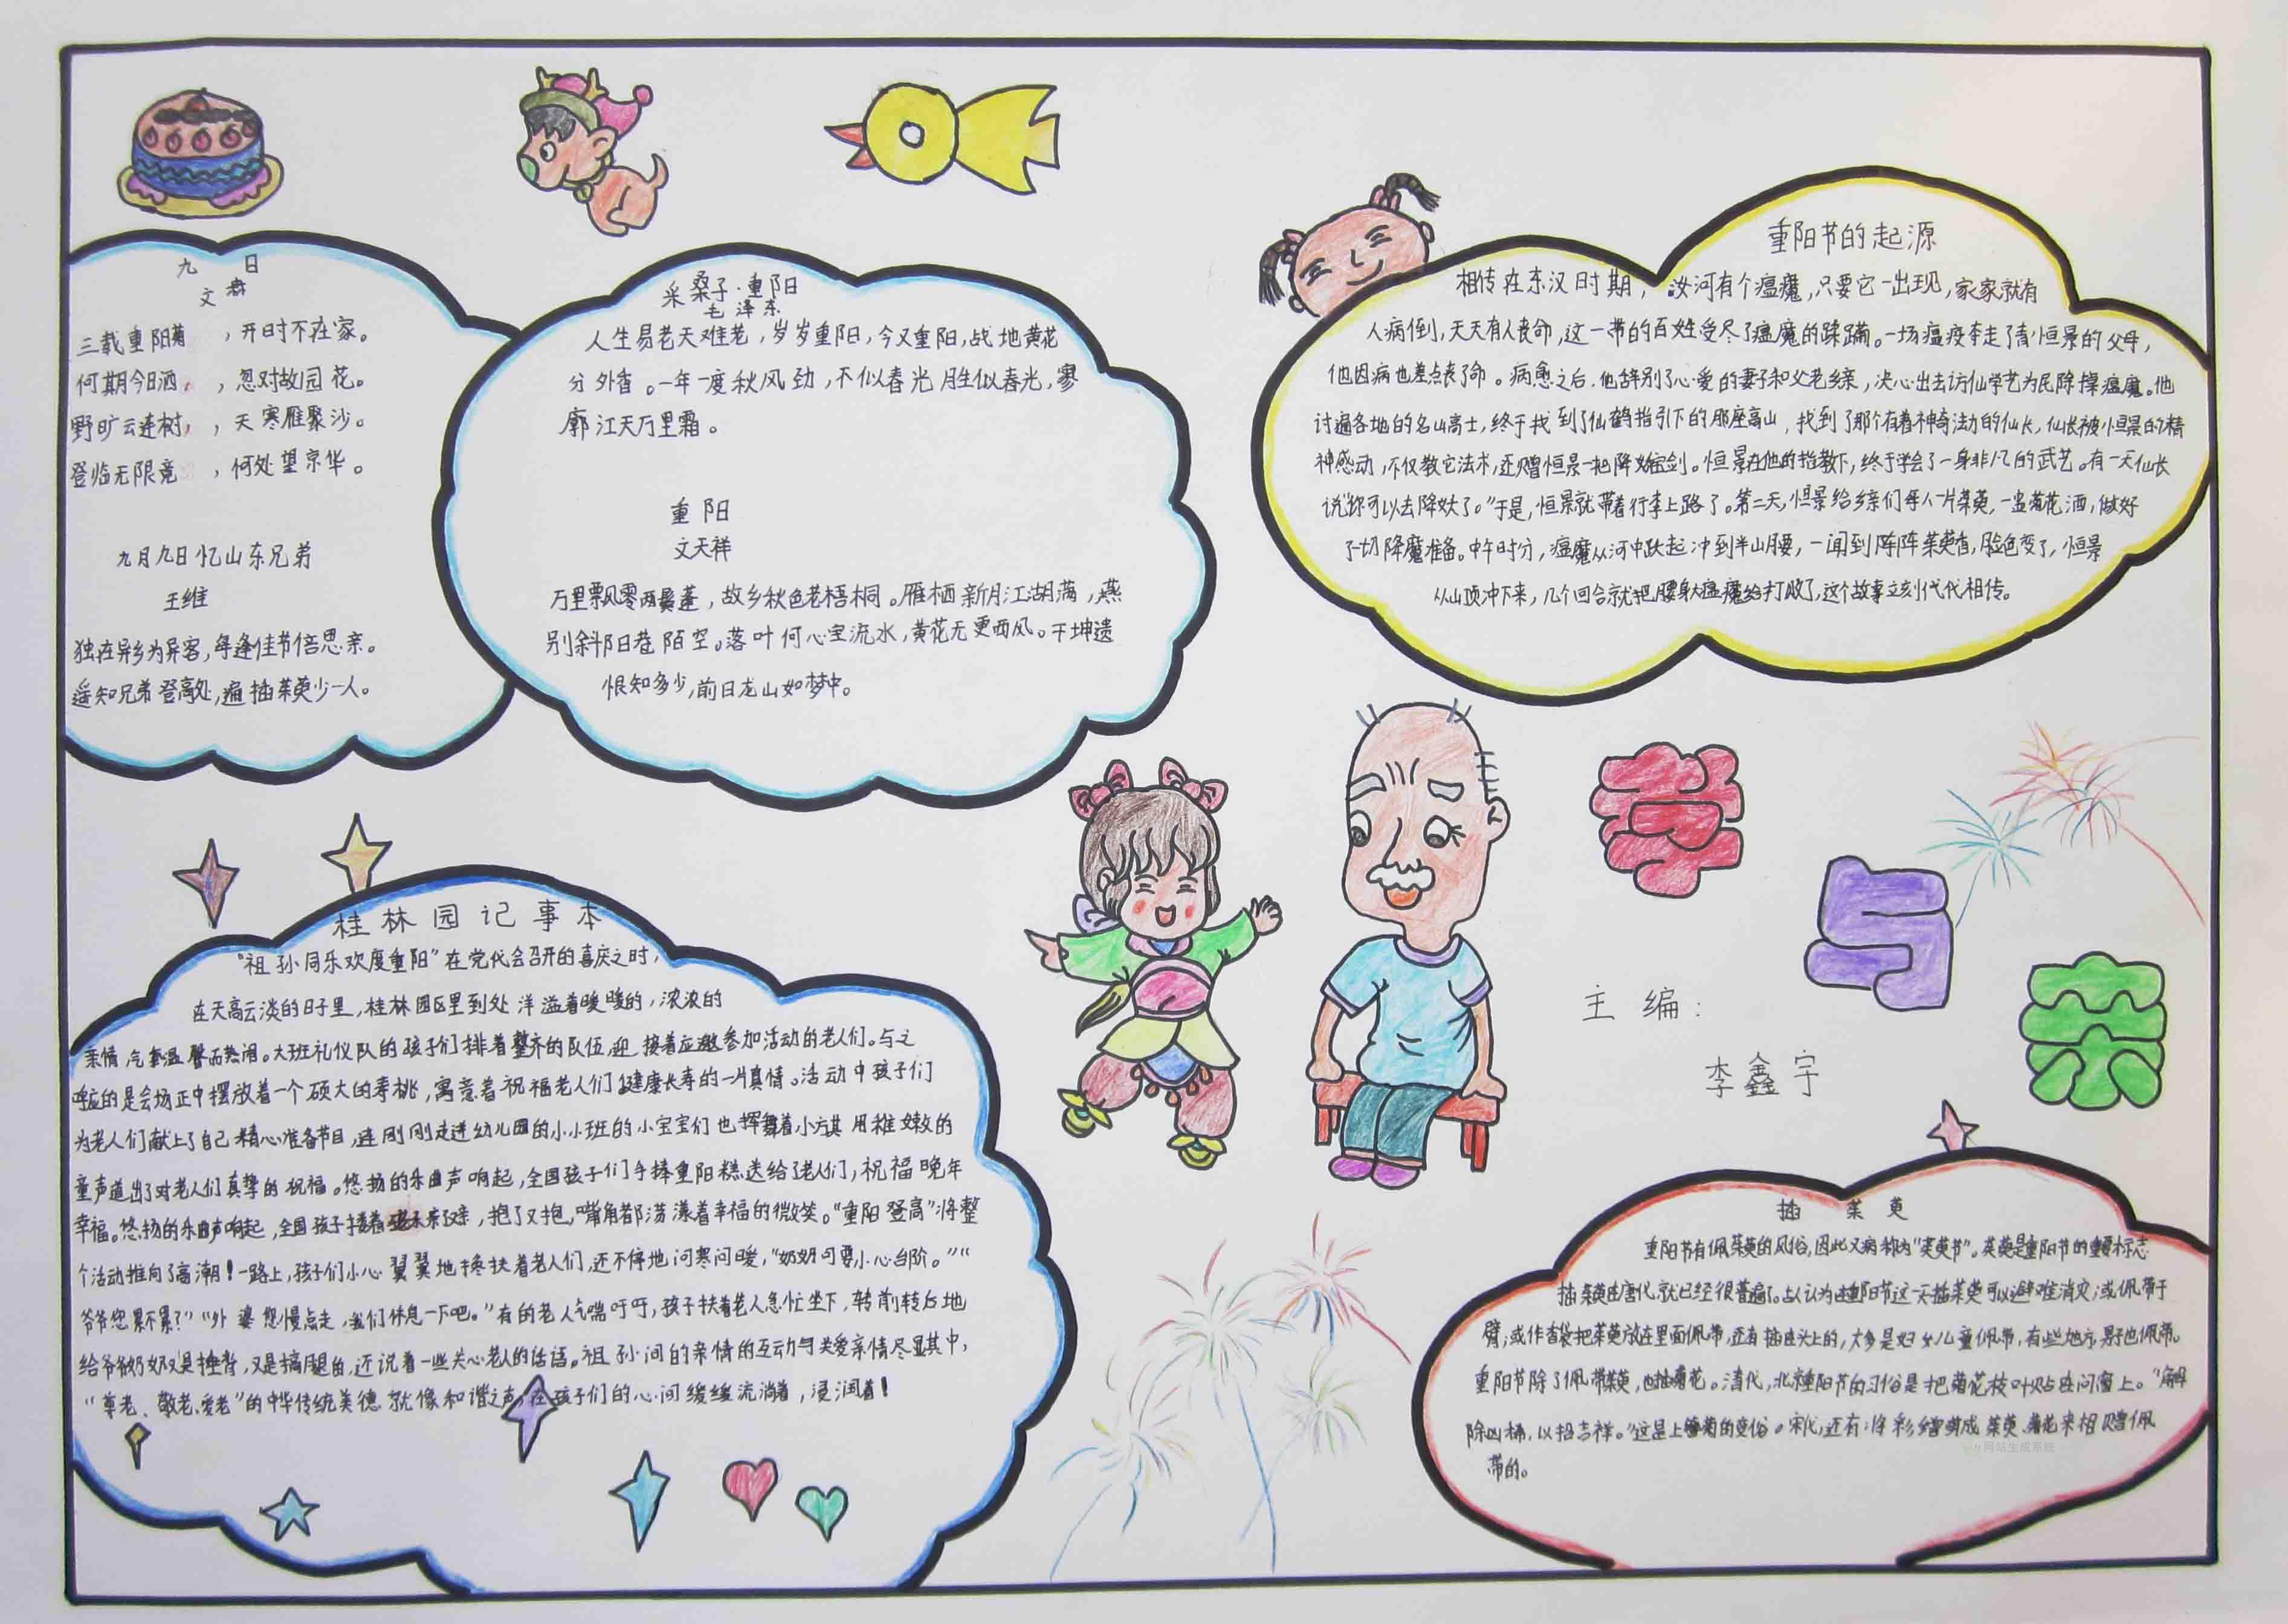 九 日
文森
三载重阳菊，开时不在家。
何期今日酒，忽对故园花。
野旷云连树，天寒雁聚沙。
登临无限意，何处望京华。
九月九日忆山东兄弟
王维
独在异乡为异客，每逢佳节倍思亲。
遥知兄弟登高处，遍插茱萸少一人。
采桑子·重阳
毛泽东
人生易老天难老，岁岁重阳，今又重阳，战地黄花
分外香。一年一度秋风劲，不似春光胜似春光，寥
廓江天万里霜。
重阳
文天祥
万里飘零两鬓蓬，故乡秋色老梧桐。雁栖新月江湖满，燕
别斜阳巷陌空。落叶何心定流水，黄花无更西风。干坤遗
恨知多少，前日龙山如梦中。
重阳节的起源
相传在东汉时期，汝河有个瘟魔，只要它一出现，家家就有
人病倒，天天有人丧命，这一带的百姓受尽了瘟魔的蹂躏。一场瘟疫夺走了青恒景的父母，
他因病也差点丧了命。病愈之后，他辞别了心爱的妻子和父老乡亲，决心出去访仙学艺为民除掉瘟魔。他
讨遍各地的名山高士，终于找到了仙鹤指引下的那座高山，找到了那个有着神奇法力的仙长，仙长被恒景的精
神感动，不仅教它法术，还赠恒景一把降妖宝剑。恒景在他的指教下，终于学会了一身非凡的武艺。有一天仙长
说"你可以去降妖了。"于是，恒景就带着行李上路了。第二天，恒景给乡亲们每人一片茱萸，一盅菊花酒，做好
了一切降魔准备。中午时分，瘟魔从河中跃起冲到半山腰，一闻到阵阵茱萸香，脸色变了，恒景
从山顶冲下来，几个回合就把瘟魔给打败了，这个故事立刻代代相传。
老
与
亲
主编：
李鑫宇
桂林园记事本
"祖孙同乐欢度重阳"在党代会召开的喜庆之时，
在天高云淡的日子里，桂林园区里到处洋溢着暖暖的，浓浓的
亲情，气氛温馨而热闹。大班礼仪队的孩子们排着整齐的队伍迎接着应邀参加活动的老人们。与之
呼应的是会场正中摆放着一个硕大的寿桃，寓意着祝福老人们健康长寿的一片真情。活动中孩子们
为老人们献上了自己精心准备节目，连刚刚走进幼儿园的小小班的小宝宝们也挥舞着小旗用稚嫩的
童声道出了对老人们真挚的祝福。悠扬的乐曲声响起，全国孩子们手捧重阳糕送给了老人们，祝福晚年
幸福。悠扬的乐曲声响起，全国孩子搂着，抱了又抱，嘴角都荡漾着幸福的微笑。"重阳登高"将整
个活动推向了高潮！一路上，孩子们小心翼翼地搀扶着老人们，还不停地问寒问暖，"奶奶可要小心台阶。""
爷爷您累不累？""外婆您慢点走，我们休息一下吧。"有的老人气喘吁吁，孩子扶着老人急忙坐下，转前转后地
给爷爷奶奶又是捶背，又是捶腿的，还说着一些关心老人的话语。祖孙间的亲情的互动与关爱亲情尽显其中，
"尊老、敬老、爱老"的中华传统美德就像和谐之声，在孩子们的心间缓缓流淌着，浸润着！
插茱萸
重阳节有佩茱萸的风俗，因此又称为"茱萸节"。茱萸是重阳节的重要标志
插茱萸在唐代就已经很普遍了。古人认为在重阳节这一天插茱萸可以避难消灾；或佩带于
臂；或作香袋把茱萸放在里面佩带，还有插在头上的，大多是妇女儿童佩带，有些地方，男子也佩带。
重阳节除了佩带茱萸，也插菊花。清代，北京重阳节的习俗是把菊花枝叶贴在门窗上。"解
除凶秽，以招吉祥。"这是上簪菊的变俗。宋代，还有将彩缯剪成茱萸、菊花来相赠佩
带的。
网站生成系统